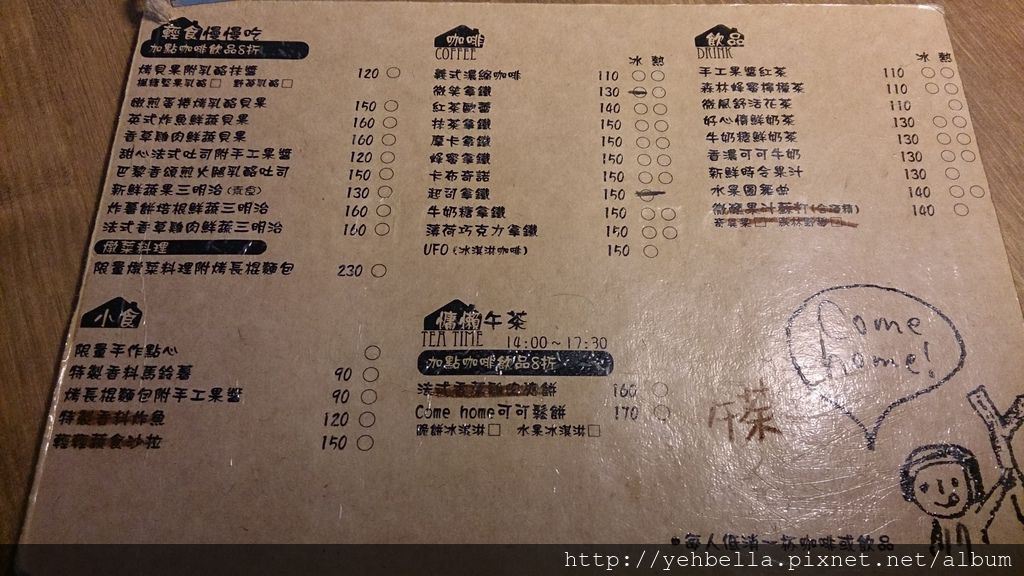 輕食慢慢吃
加點咖啡飲品8折
烤貝果附乳酪抹醬 120
150
英式炸魚鮮蔬貝果 160
香草雞肉鮮蔬貝果 160
甜心法式吐司附手工果醬 120
巴黎香頌煎火腿乳酪吐司 150
新鮮蔬果三明治(素食) 130
炸薯餅培根鮮蔬三明治 160
法式香草雞肉鮮蔬三明治 160
燉菜料理
限量燉菜料理附烤長棍麵包 230
小食
限量手作點心
特製香料馬鈴薯 90
烤長棍麵包附手工果醬 90
特製香料炸魚 120
沙拉 150
咖啡
COFFEE
冰 熱
義式濃縮咖啡 110
微笑拿鐵 130
紅茶歐蕾 140
抹茶拿鐵 150
摩卡拿鐵 150
蜂蜜拿鐵 150
卡布奇諾 150
起司拿鐵 150
牛奶糖拿鐵 150
薄荷巧克力拿鐵 150
UFO(冰淇淋咖啡) 150
慵懶午茶
TEA TIME 14:00~17:30
加點咖啡飲品8折
160
Come home可可鬆餅 170
脆餅冰淇淋□ 水果冰淇淋□
飲品
DRINK
冰 熱
手工果醬紅茶 110
森林蜂蜜檸檬茶 110
微風舒活花茶 110
好心情鮮奶茶 130
牛奶糖鮮奶茶 130
香濃可可牛奶 130
新鮮時令果汁 130
水果圓舞曲 140
140
百香果□ 森林野莓□
Come
home!
午茶
*每人低消一杯咖啡或飲品
http://yehbella.pixnet.net/album